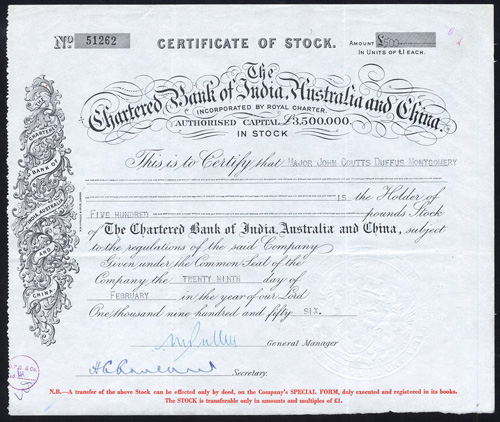 Nº 51262 CERTIFICATE OF STOCK. AMOUNT £500
IN UNITS OF £1 EACH.
The
Chartered Bank of India, Australia and China.
INCORPORATED BY ROYAL CHARTER.
AUTHORISED CAPITAL £3,500,000.
IN STOCK
This is to Certify that MAJOR JOHN COUTTS DUFFUS MONTGOMERY
is the Holder of
FIVE HUNDRED pounds Stock
of The Chartered Bank of India, Australia and China, subject
to the regulations of the said Company
Given under the Common Seal of the
Company the TWENTY NINTH day of
FEBRUARY in the year of our Lord
One thousand nine hundred and fifty SIX.
General Manager
Secretary.
N.B.—A transfer of the above Stock can be effected only by deed, on the Company's SPECIAL FORM, duly executed and registered in its books.
The STOCK is transferable only in amounts and multiples of £1.
THE
CHARTERED
BANK OF
INDIA, AUSTRALIA
AND
CHINA